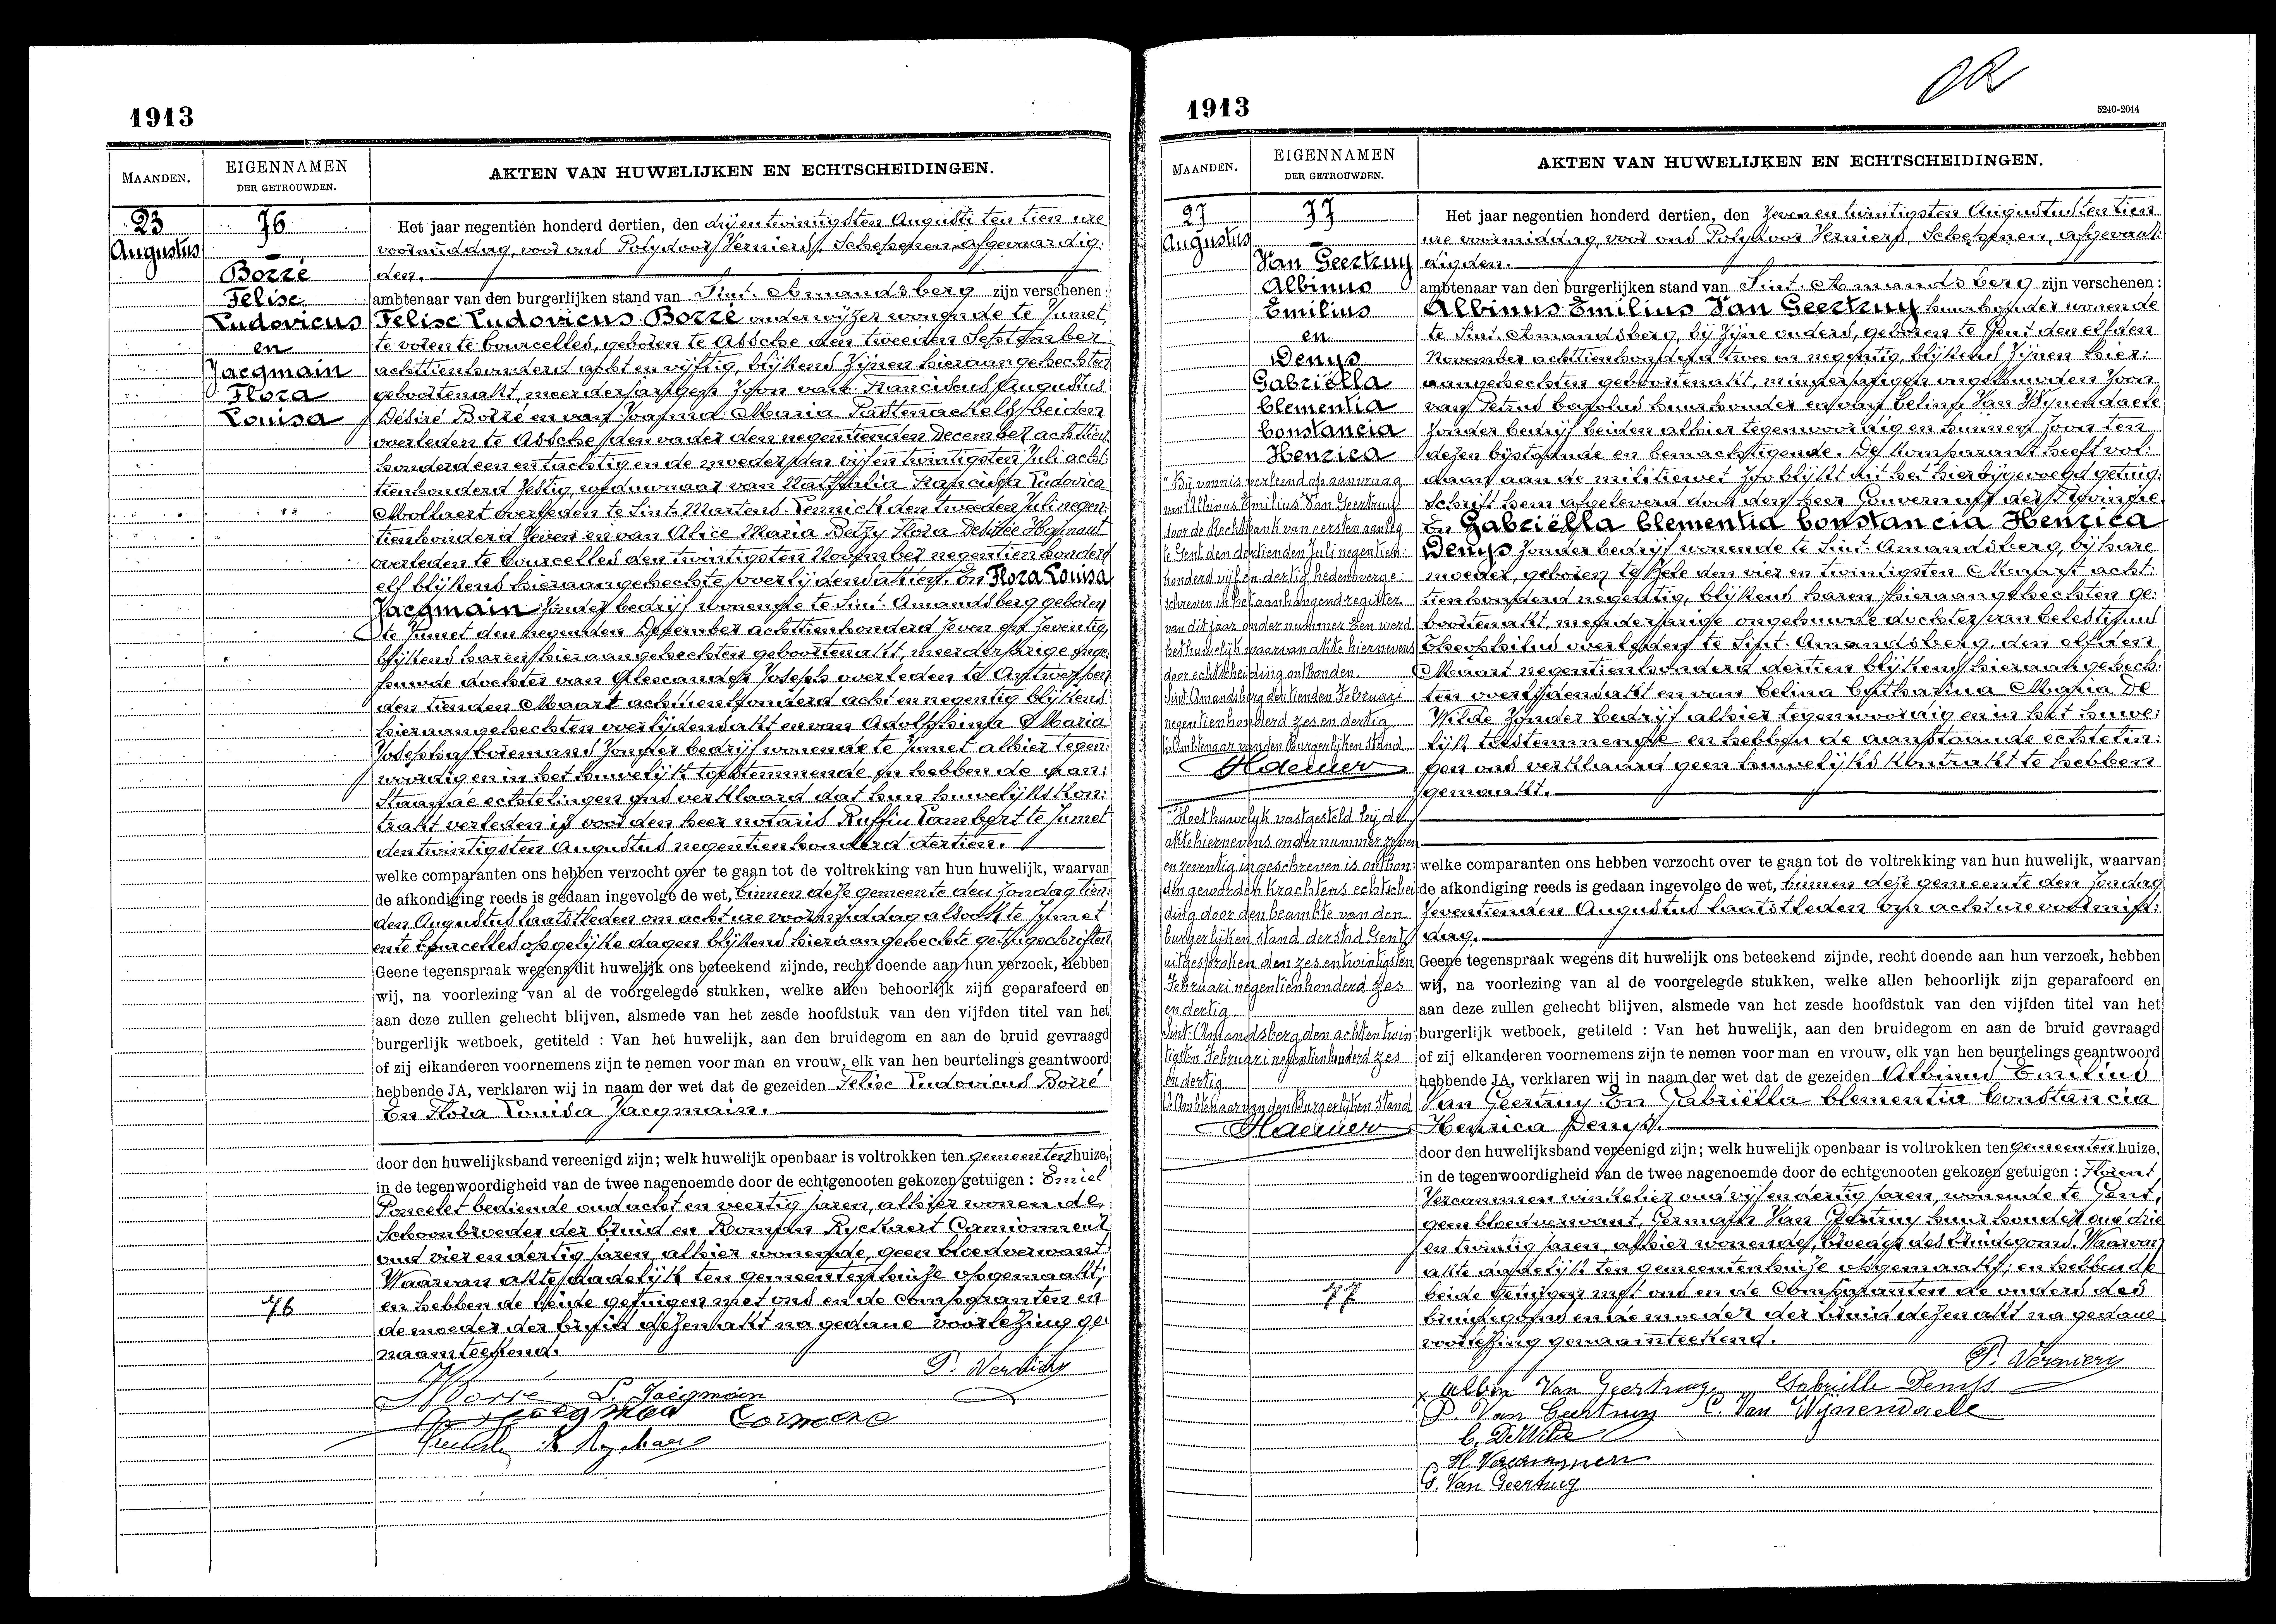 1913
MAANDEN.
EIGENNAMEN
DER GETROUWDEN.
AKTEN VAN HUWELIJKEN EN ECHTSCHEIDINGEN.
23
Augustus
76
Borré
Felise
Ludovicus
en
Jacqmain
Flora
Louisa
Het jaar negentien honderd dertien, den drij en twintigsten Augusti ten tien ure
voormiddag, voor ons Polydoor Verniers, Schepenen, afgevaardig:
den.
ambtenaar van den burgerlijken stand van Sint. Amandsberg zijn verschenen:
Felise Ludovicus Borré onderwijzer wonende te Jumet,
te voren te Courcelles, geboren te Assche den tweeden September
achttienhonderd acht en vijftig, blijkens zijnen hieraangehechten
geboorteakt, meerderjarigen zoon van Franciscus Augustus
Désiré Borré en van Joanna Maria beiden
overleden te Assche den vader den negentienden December achttien
honderd een en tachtig en de moeder den vijf en twintigsten Juli acht
tienhonderd zestig, weduwnaar van Nathalia Francisca Ludovica
Mollaert overleden te Sint. Martens. Lennick den tweeden Juli negen:
tienhonderd zeven en van Alice Maria Betzy Flora Desirée Hainaut
overleden te Courcelles den twintigsten November negentien honderd
elf blijkens hieraangehechte overlijdensakten. En Flora Louisa
Jacqmain zonder bedrijf wonende te Sint. Amandsberg geboren
te Jumet den negenden December achttienhonderd zeven en zeventig,
blijkens haren hieraangehechten geboorteakt, meerderjarige onge:
huwde dochter van Alexander Joseph overleden te Antwerpen
den tienden Maart achttienhonderd acht en negentig blijkens
hieraangehechten overlijdensakt en van Adolphina Maria
Josepha zonder bedrijf wonende te Jumet alhier tegen:
woordig en in het huwelijk toestemmende en hebben de aan:
staande echtelingen ons verklaard dat hun huwelijkskon:
trakt verleden is voor den heer notaris Ruffin Lambert te Jumet
den twintigsten Augustus negentienhonderd dertien.
welke comparanten ons hebben verzocht over te gaan tot de voltrekking van hun huwelijk, waarvan
de afkondiging reeds is gedaan ingevolge de wet, binnen deze gemeente den zondag tien:
den Augustus laatstleden om acht ure voormiddag alsook te Jumet
en te Courcelles op gelijke dagen blijkens hieraangehechte getuigschriften
Geene tegenspraak wegens dit huwelijk ons beteekend zijnde, recht doende aan hun verzoek, hebben
wij, na voorlezing van al de voorgelegde stukken, welke allen behoorlijk zijn geparafeerd en
aan deze zullen gehecht blijven, alsmede van het zesde hoofdstuk van den vijfden titel van het
burgerlijk wetboek, getiteld : Van het huwelijk, aan den bruidegom en aan de bruid gevraagd
of zij elkanderen voornemens zijn te nemen voor man en vrouw, elk van hen beurtelings geantwoord
hebbende JA, verklaren wij in naam der wet dat de gezeiden Felise Ludovicus Borré
En Flora Louisa Jacqmain.
door den huwelijksband vereenigd zijn; welk huwelijk openbaar is voltrokken ten gemeentenhuize,
in de tegenwoordigheid van de twee nagenoemde door de echtgenooten gekozen getuigen : Emiel
Poncelet bediende oud acht en veertig jaren, alhier wonende,
Schoonbroeder der bruid en Romain Ryckaert Camionneur
oud vier en dertig jaren, alhier wonende, geen bloedverwant
Waarvan akte dadelijk ten gemeentenhuize opgemaakt;
76
en hebben de beide getuigen met ons en de comparanten en
de moeder der bruid dezen akt na gedane voorlezing ge
naamteekend.
P. Verniers
Borré L. Jacqmain
1913
OR
5240-2044
MAANDEN.
EIGENNAMEN
DER GETROUWDEN.
AKTEN VAN HUWELIJKEN EN ECHTSCHEIDINGEN.
27
Augustus
77
Van Geertruy
Albinus
Emilius
en
Denys
Gabriëlla
Clementia
Constancia
Henrica
Bij vonnis verleend op aanvraag
van Albinus Emilius Van Geertruy
door de Rechtbank van eersten aanleg
te Gent den dertienden Juli negentien:
honderd vijf en dertig heden overge:
schreven in het aanhangend register
van dit jaar onder nummer tien werd
het huwelijk waarvan akte hiernevens
door echtscheiding ontbonden.
Sint-Amandsberg den tienden Februari
negentienhonderd zes en dertig
De Ambtenaar van den Burgerlijken Stand
Het huwelijk vastgesteld bij de
akte hiernevens onder nummer zeven
en zeventig ingeschreven is ontbon:
den geworden krachtens echtschei
ding door den beambte van den
burgerlijken stand der stad Gent
uitgesproken den zes en twintigsten
Februari negentienhonderd zes
en dertig
Sint-Amandsberg den acht en twin
tigsten Februari negentienhonderd zes
en dertig
De Ambtenaar van den Burgerlijken Stand
Het jaar negentien honderd dertien, den zeven en twintigsten Augustus ten tien
ure voormiddag, voor ons Polydoor Verniers, Schepenen, afgevaar:
digden.
ambtenaar van den burgerlijken stand van Sint. Amandsberg zijn verschenen:
Albinus Emilius Van Geertruy huurhouder wonende
te Sint. Amandsberg, bij zijne ouders, geboren te Gent den elfden
November achttienhonderd twee en negentig, blijkens zijnen hier:
aangehechten geboorteakt, minderjarigen ongehuwden zoon
van Petrus Carolus huurhouder en van Celina Van Wynendaele
zonder bedrijf beiden alhier tegenwoordig en hunnen zoon ten
dezen bijstaande en bemachtigende. De komparant heeft vol:
daan aan de militiewet zoo blijkt uit het hierbijgevoegd getuig:
schrift hem afgeleverd door den heer Gouverneur der Provincie.
En Gabriëlla Clementia Constancia Henrica
Denys zonder bedrijf wonende te Sint. Amandsberg, bij hare
moeder, geboren te Zele den vier en twintigsten Maart acht:
tienhonderd negentig, blijkens haren hieraangehechten ge:
boorteakt, meerderjarige ongehuwde dochter van Celestinus
Theophilus overleden te Sint. Amandsberg, den elfden
Maart negentienhonderd dertien blijkens hieraangehech:
ten overlijdensakt en van Celina Catharina Maria De
Wilde zonder bedrijf alhier tegenwoordig en in het huwe:
lijk toestemmende en hebben de aanstaande echtelin:
gen ons verklaard geen huwelijkskontrakt te hebben
gemaakt.
welke comparanten ons hebben verzocht over te gaan tot de voltrekking van hun huwelijk, waarvan
de afkondiging reeds is gedaan ingevolge de wet, binnen deze gemeente den zondag
zeventienden Augustus laatstleden om acht ure voormid:
dag.
Geene tegenspraak wegens dit huwelijk ons beteekend zijnde, recht doende aan hun verzoek, hebben
wij, na voorlezing van al de voorgelegde stukken, welke allen behoorlijk zijn geparafeerd en
aan deze zullen gehecht blijven, alsmede van het zesde hoofdstuk van den vijfden titel van het
burgerlijk wetboek, getiteld : Van het huwelijk, aan den bruidegom en aan de bruid gevraagd
of zij elkanderen voornemens zijn te nemen voor man en vrouw, elk van hen beurtelings geantwoord
hebbende JA, verklaren wij in naam der wet dat de gezeiden Albinus Emilius
Van Geertruy En Gabriëlla Clementia Constancia
Henrica Denys.
door den huwelijksband vereenigd zijn; welk huwelijk openbaar is voltrokken ten gemeentenhuize,
in de tegenwoordigheid van de twee nagenoemde door de echtgenooten gekozen getuigen : Florent
Vercammen winkelier oud vijf en dertig jaren, wonende te Gent,
geen bloedverwant, Germain Van Geertruy huurhouder oud drie
en twintig jaren, alhier wonende, broeder des bruidegoms. Waarvan
akte dadelijk ten gemeentenhuize opgemaakt; en hebben de
77
beide getuigen met ons en de Comparanten de ouders des
bruidegoms en de moeder der bruid dezen akt na gedane
voorlezing genaamteekend.
P. Verniers
Albin Van Geertruy Gabrielle Denys
P. Van Geertruy C. Van Wynendaele
C. De Wilde
Vercammen
G. Van Geertruy